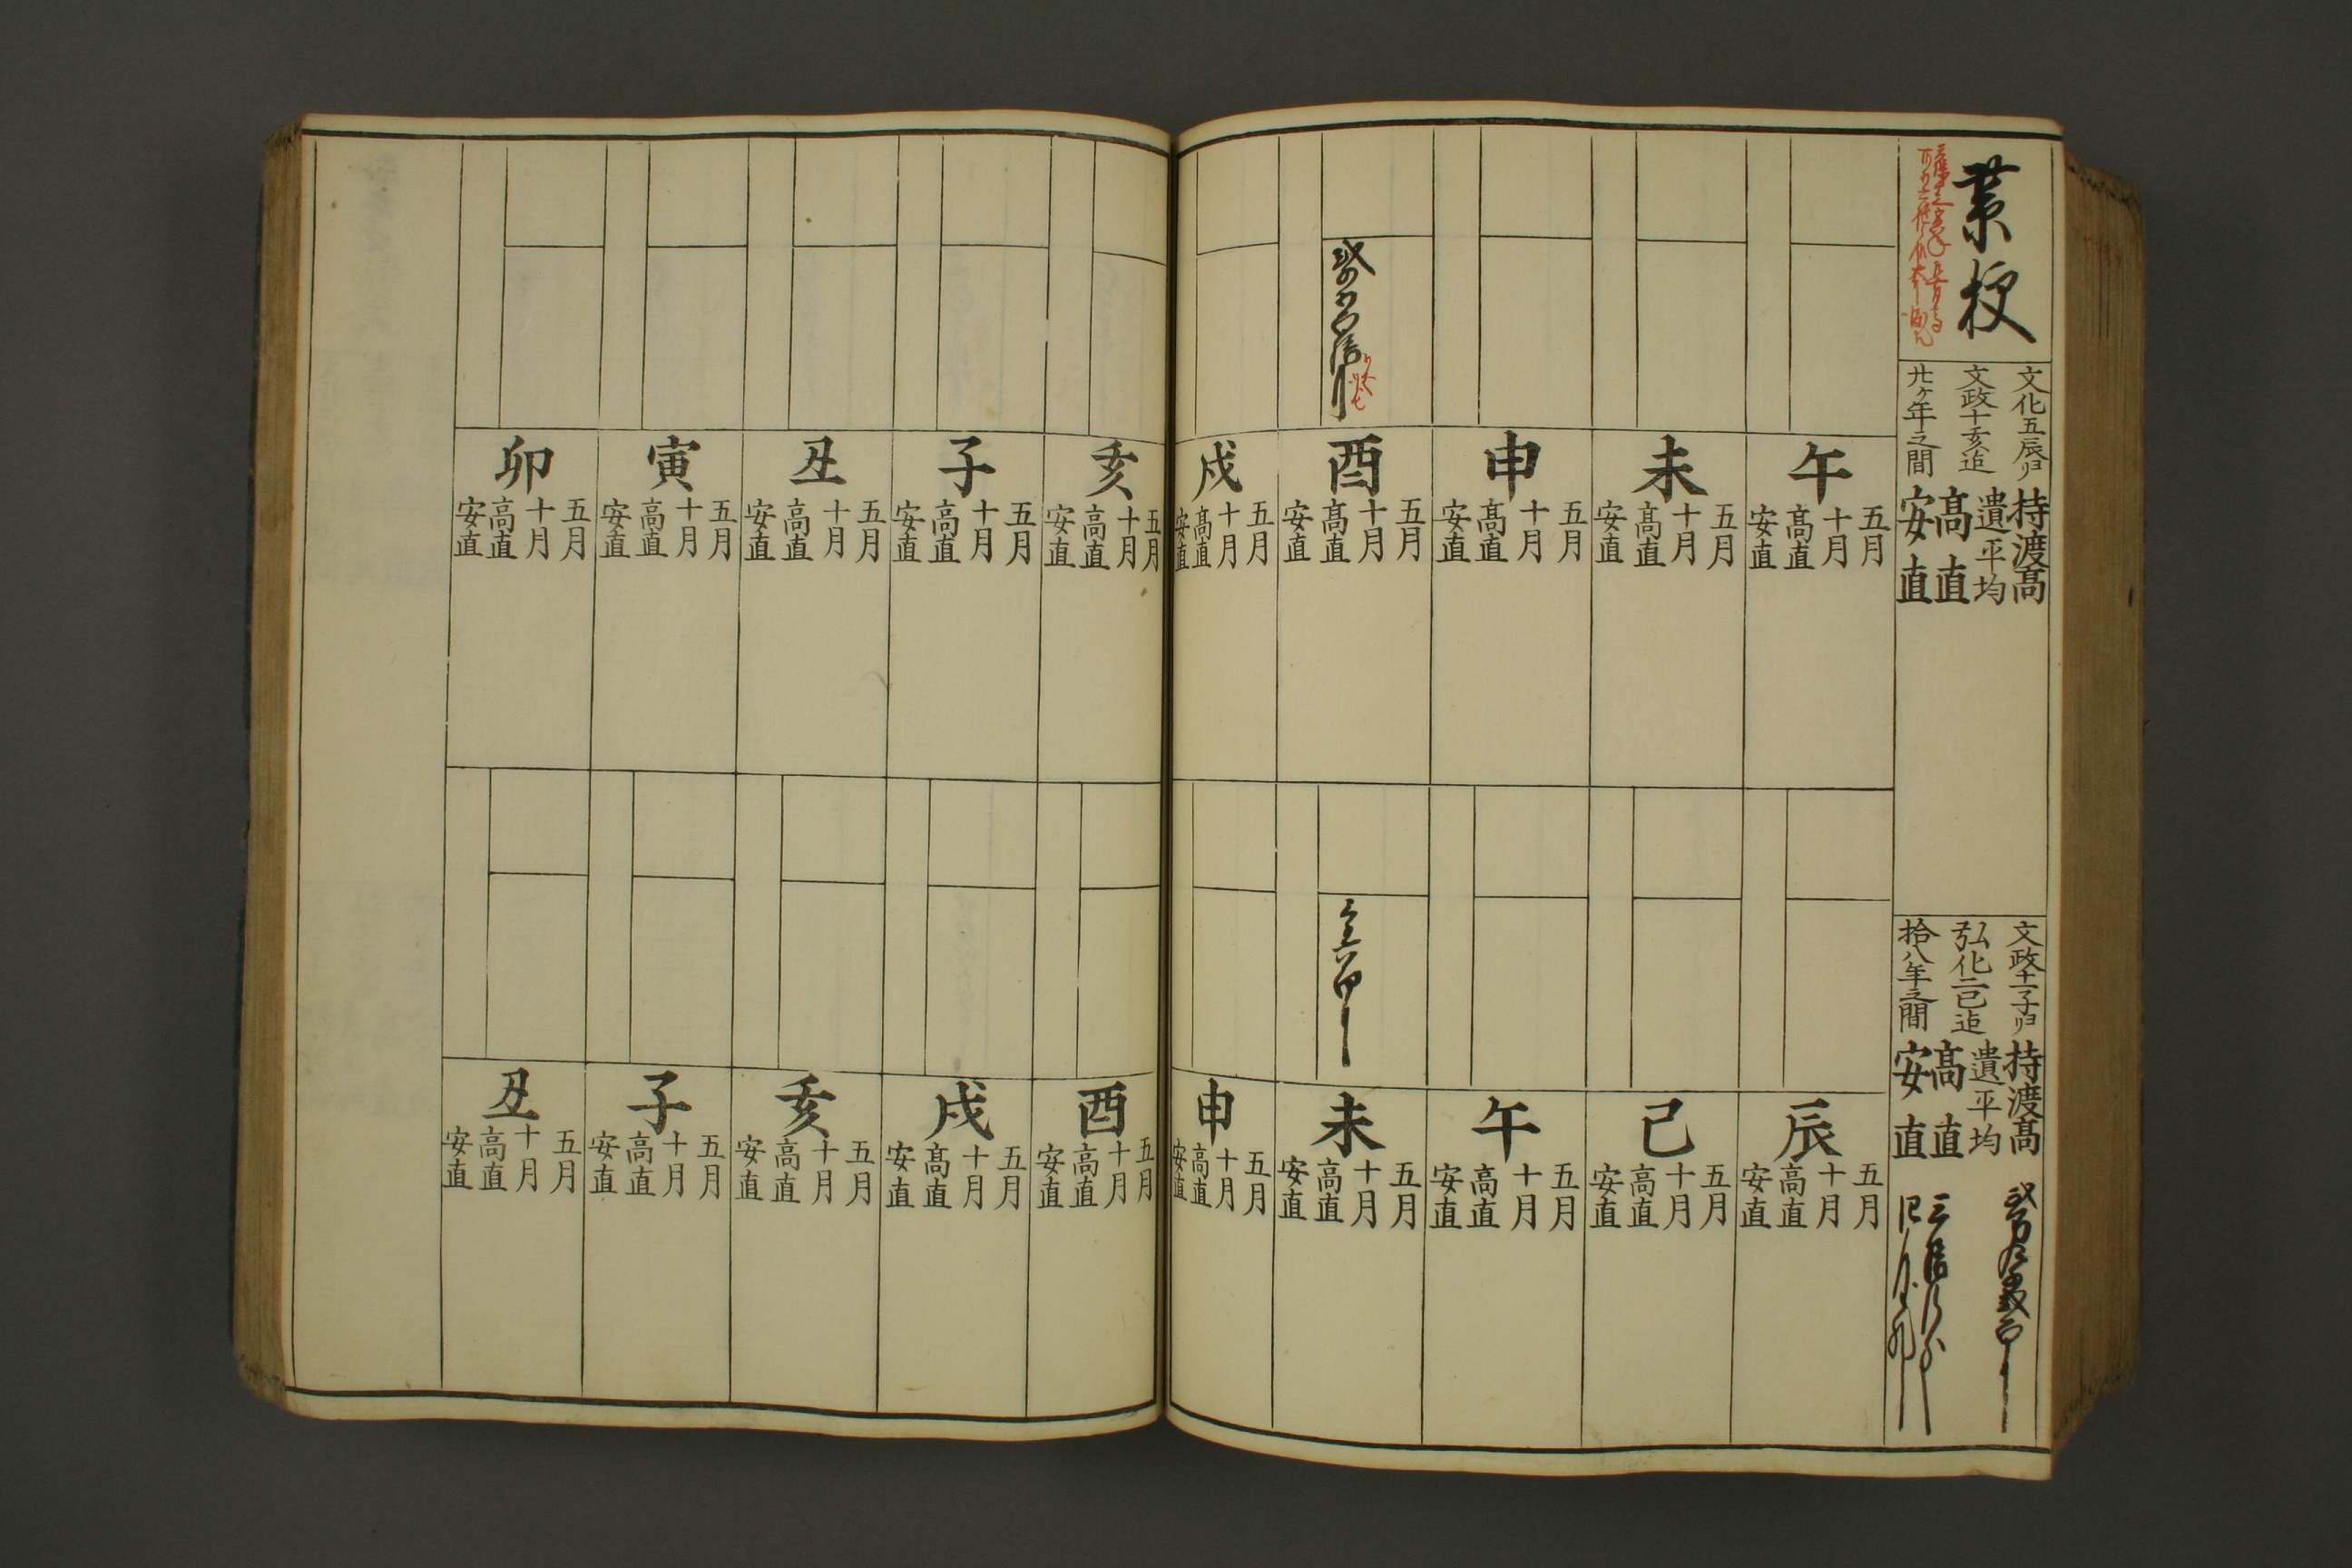 文化五辰ヨリ
文政十亥迠
廿ケ年之間
持渡髙
遺平均
髙直
安直
文政十一子ヨリ
弘化二巳迠
拾八年之間
持渡髙
遺平均
髙直
安直
午
五月
十月
髙直
安直
未
五月
十月
髙直
安直
申
五月
十月
髙直
安直
酉
五月
十月
髙直
安直
戌
五月
十月
髙直
安直
辰
五月
十月
髙直
安直
巳
五月
十月
髙直
安直
午
五月
十月
髙直
安直
未
五月
十月
髙直
安直
申
五月
十月
髙直
安直
亥
五月
十月
髙直
安直
子
五月
十月
髙直
安直
丑
五月
十月
髙直
安直
寅
五月
十月
髙直
安直
卯
五月
十月
髙直
安直
酉
五月
十月
髙直
安直
戌
五月
十月
髙直
安直
亥
五月
十月
髙直
安直
子
五月
十月
髙直
安直
丑
五月
十月
髙直
安直